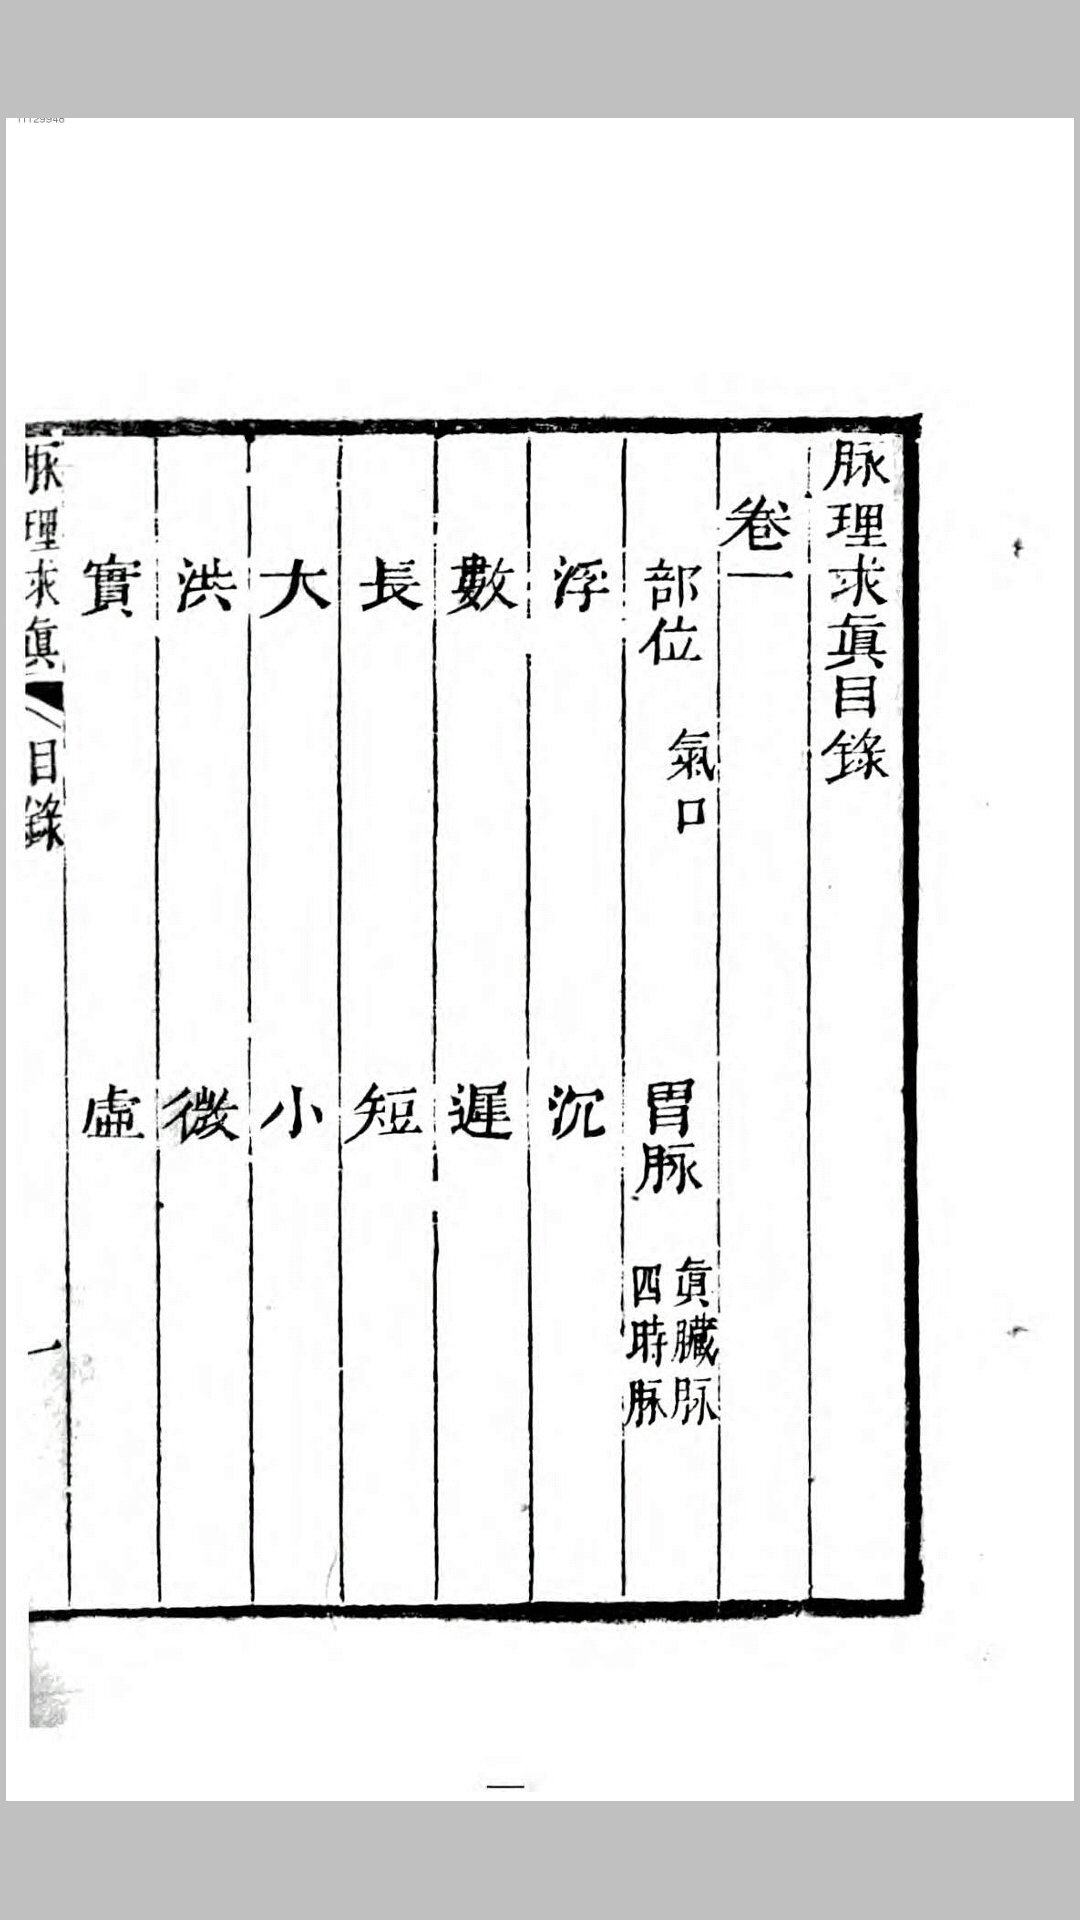 脉理求眞目錄
卷一
部位 氣口 胃脉 眞臟脉 四時脉
浮 沉
數 遲
長 短
大 小
洪 微
實 虛
脉理求眞 目錄 一
一